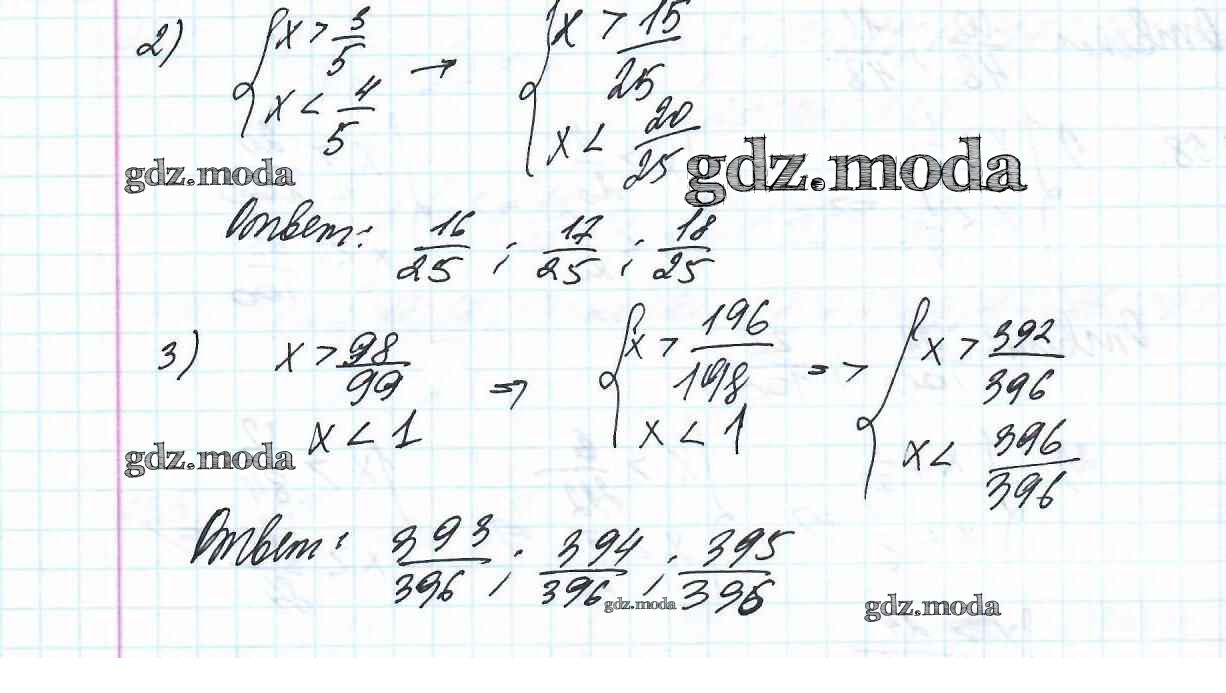 2) { x > 3/5 → { x > 15/25
x < 4/5 x < 20/25
gdz.moda gdz.moda
Ответ: 16/25 ; 17/25 ; 18/25
3) x > 98/99 => { x > 196/198 => { x > 392/396
x < 1 x < 1 x < 396/396
gdz.moda
Ответ: 393/396 ; 394/396 ; 395/396
gdz.moda gdz.moda